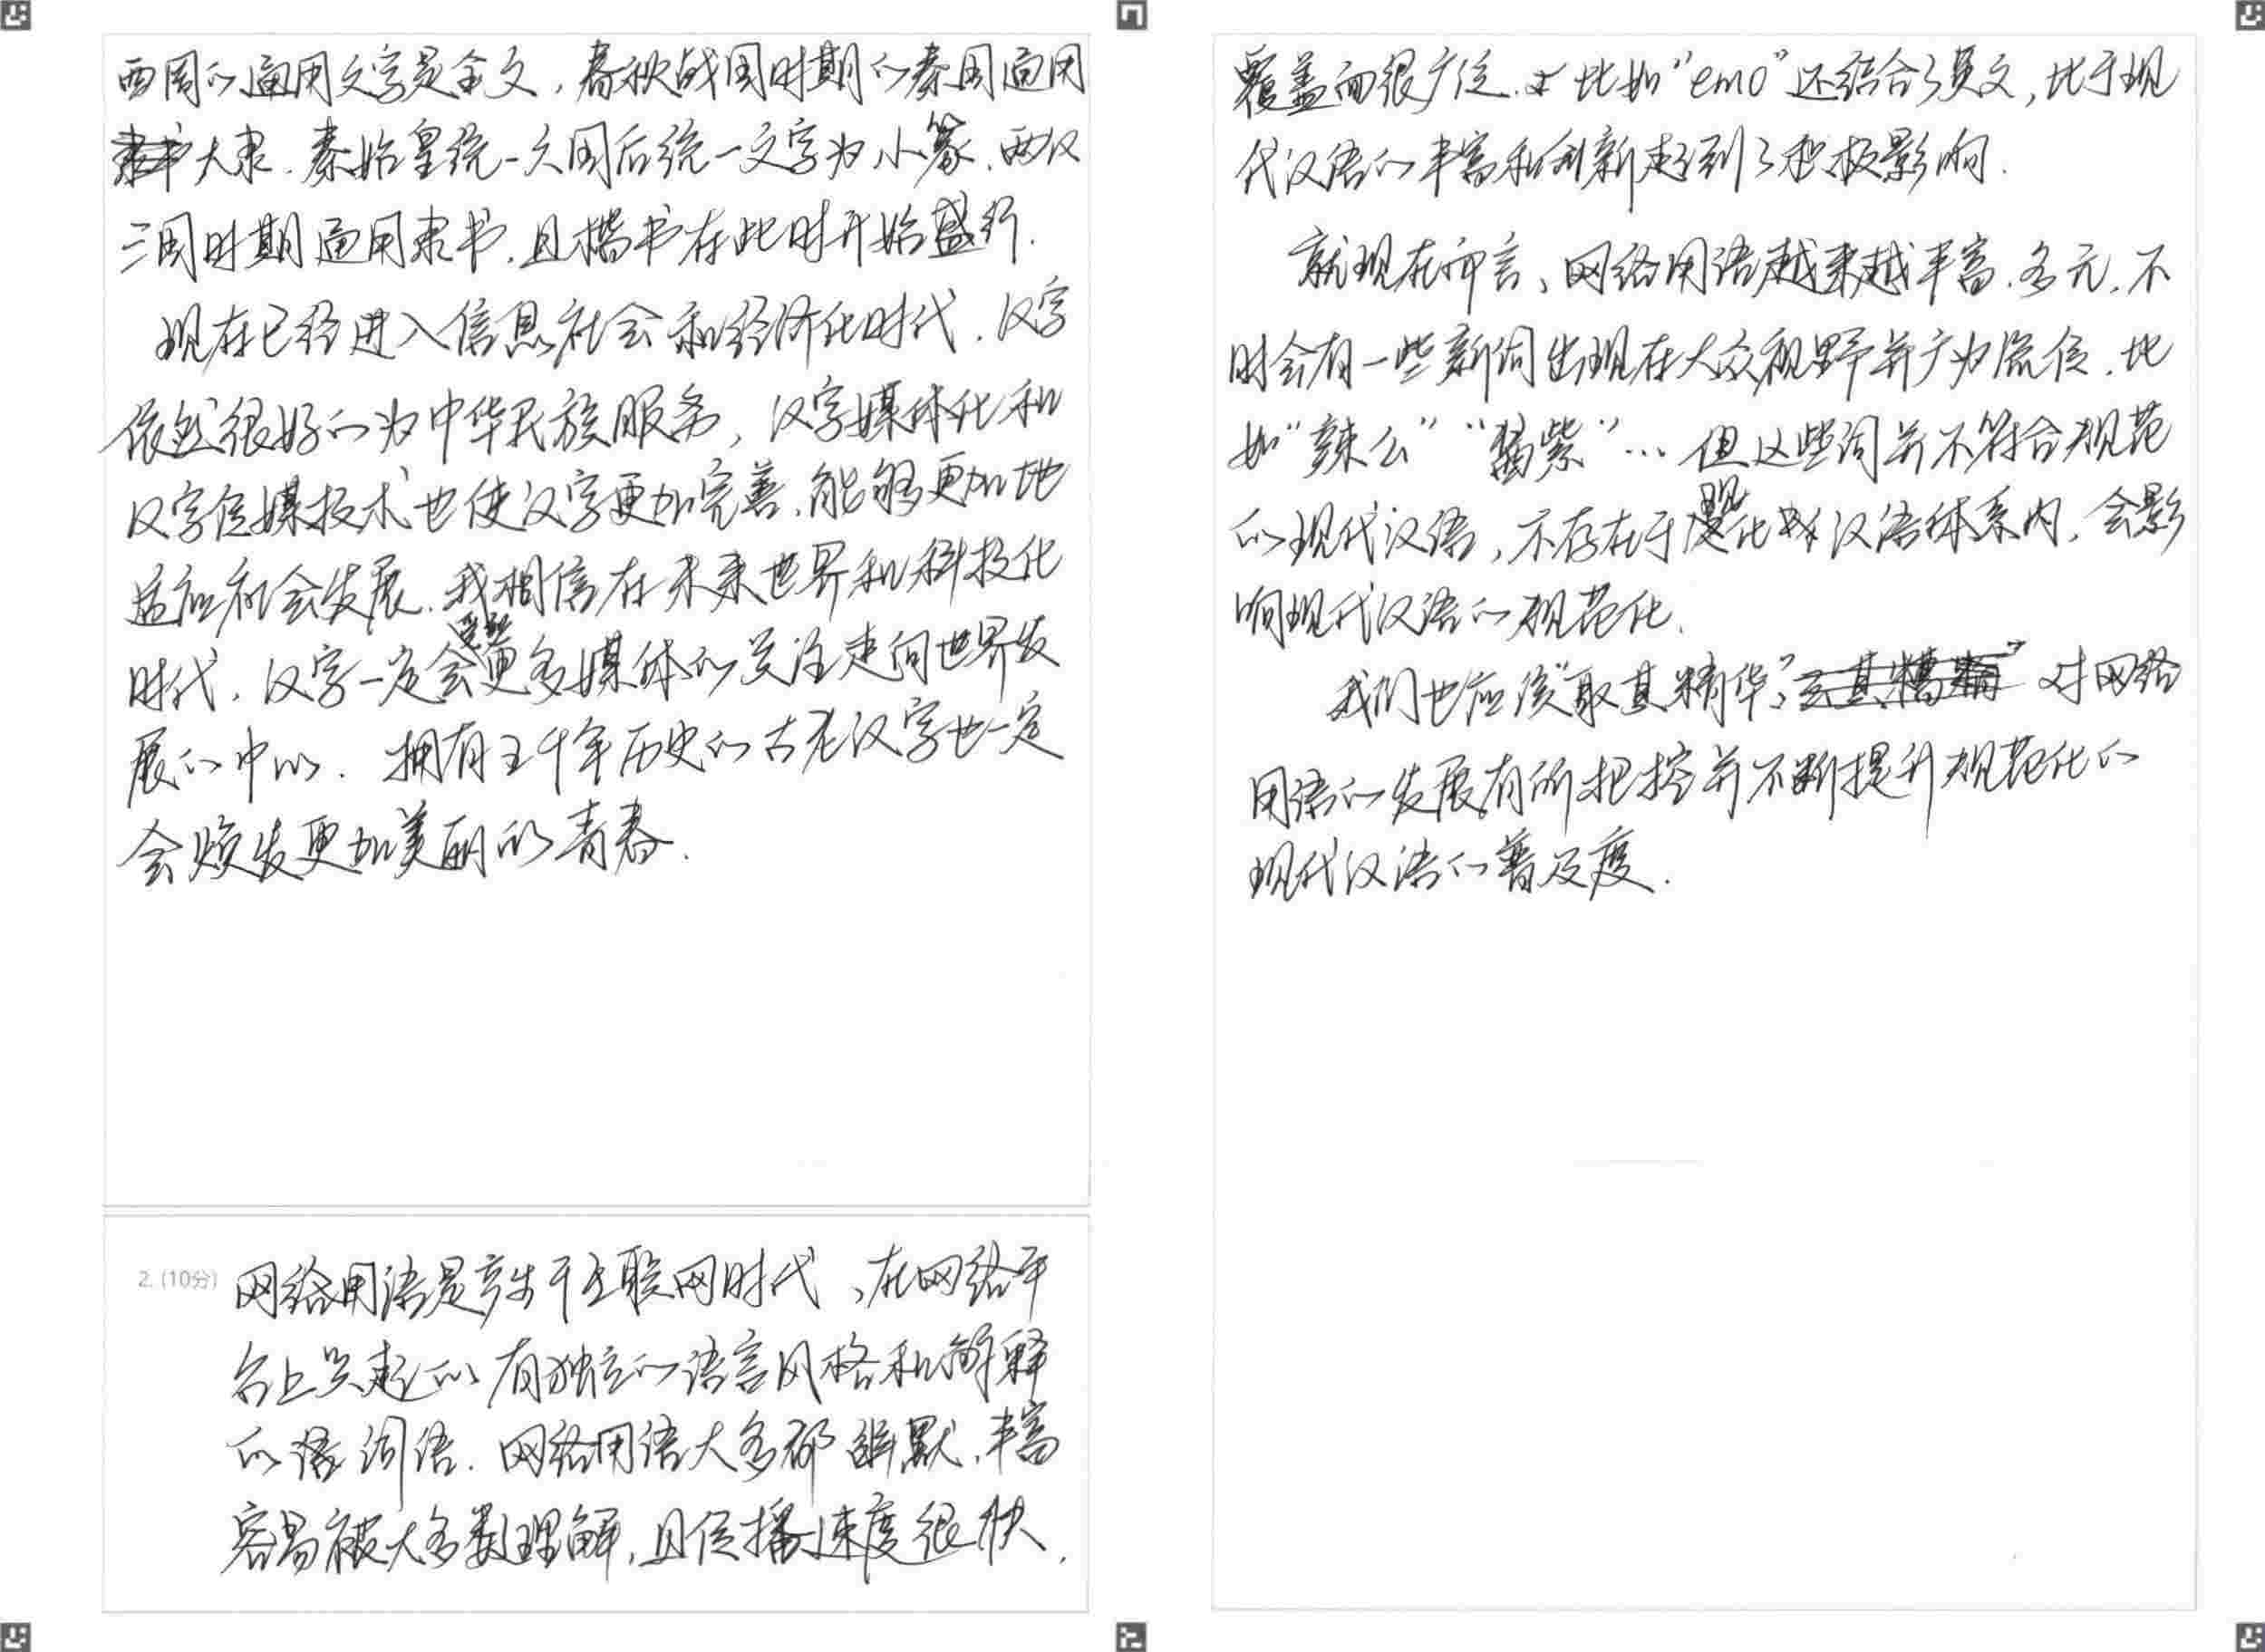 西周的通用文字是金文，春秋战国时期的秦国通用
大隶．秦始皇统一六国后统一文字为小篆．两汉
三国时期通用隶书．且楷书在此时开始盛行．
现在已经进入信息社会和经济化时代．汉字
依然很好的为中华民族服务，汉字媒体化和
汉字传媒技术也使汉字更加完善．能够更加地
适应社会发展．我相信在未来世界和科技化
时代．汉字一定会受到更多媒体的关注走向世界发
展的中心．拥有五千年历史的古老汉字也一定
会焕发更加美丽的青春．
2. (10分) 网络用语是产生于互联网时代、在网络平
台上兴起的有独立的语言风格和解释
的词语．网络用语大多都幽默．丰富
容易被大多数理解，且传播速度很快．
覆盖面很广泛．比如“emo”还结合了英文，比于现
代汉语的丰富和创新起到了积极影响．
就现在而言、网络用语越来越丰富．多元．不
时会有一些新词出现在大众视野并广为流传．比
如“辣么”“紫”… 但这些词并不符合规范
的现代汉语，不存在于现代汉语体系内．会影
响现代汉语的规范化．
我们也应该“取其精华”对网络
用语的发展有所把控并不断提升规范化的
现代汉语的普及度．